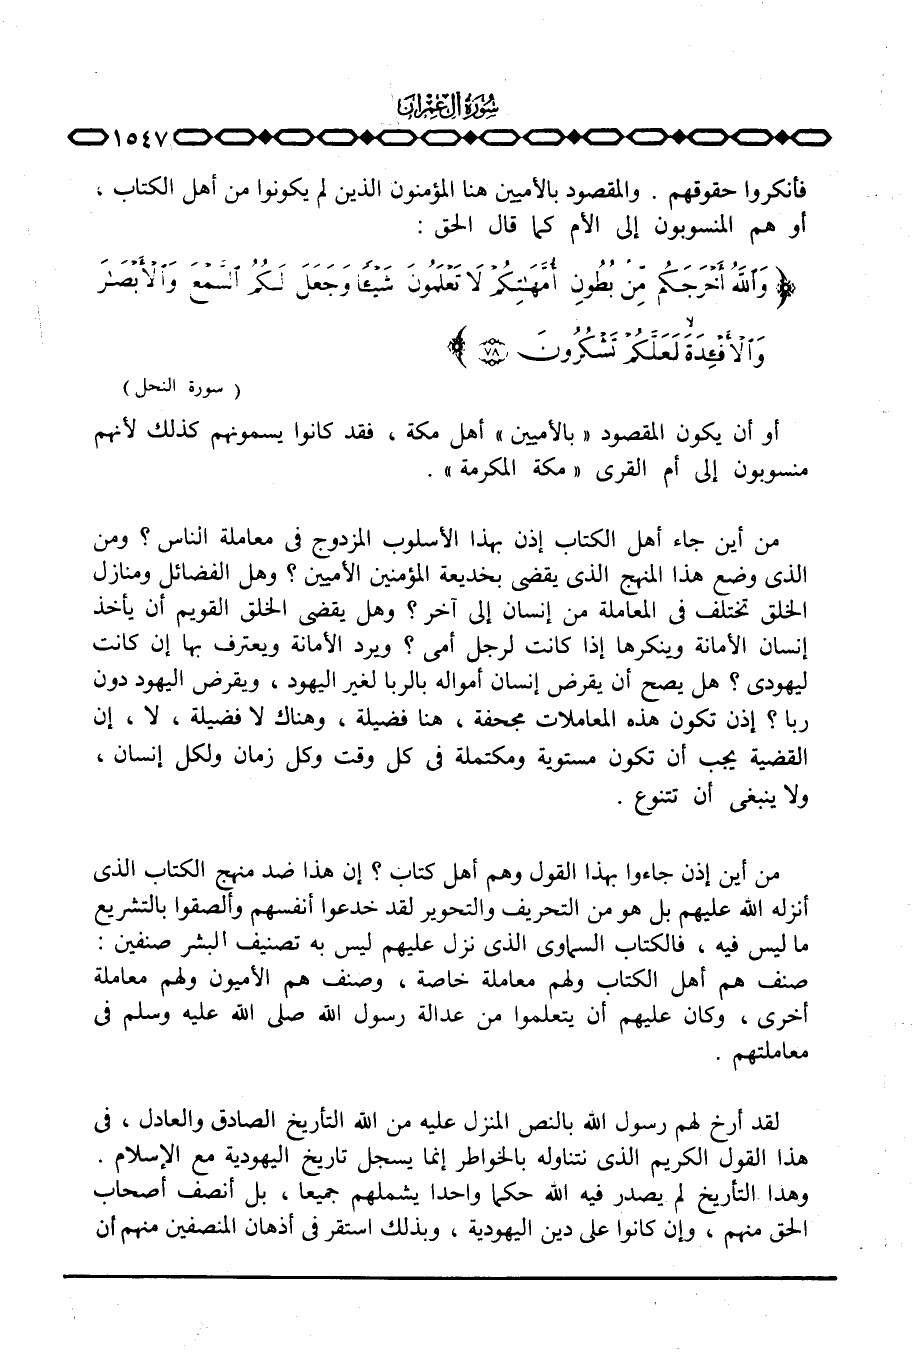 سورة آل عمران
١٥٤٧
فأنكروا حقوقهم . والمقصود بالأميين هنا المؤمنون الذين لم يكونوا من أهل الكتاب ،
أو هم المنسوبون إلى الأم كما قال الحق :
﴿ وَٱللَّهُ أَخْرَجَكُم مِّنۢ بُطُونِ أُمَّهَٰتِكُمْ لَا تَعْلَمُونَ شَيْـًٔا وَجَعَلَ لَكُمُ ٱلسَّمْعَ وَٱلْأَبْصَٰرَ
وَٱلْأَفْـِٔدَةَ ۙ لَعَلَّكُمْ تَشْكُرُونَ ٧٨ ﴾
( سورة النحل )
أو أن يكون المقصود « بالأميين » أهل مكة ، فقد كانوا يسمونهم كذلك لأنهم
منسوبون إلى أم القرى « مكة المكرمة » .
من أين جاء أهل الكتاب إذن بهذا الأسلوب المزدوج فى معاملة الناس ؟ ومن
الذى وضع هذا المنهج الذى يقضى بخديعة المؤمنين الأميين ؟ وهل الفضائل ومنازل
الخلق تختلف فى المعاملة من إنسان إلى آخر ؟ وهل يقضى الخلق القويم أن يأخذ
إنسان الأمانة وينكرها إذا كانت لرجل أمى ؟ ويرد الأمانة ويعترف بها إن كانت
ليهودى ؟ هل يصح أن يقرض إنسان أمواله بالربا لغير اليهود ، ويقرض اليهود دون
ربا ؟ إذن تكون هذه المعاملات مجحفة ، هنا فضيلة ، وهناك لا فضيلة ، لا ، إن
القضية يجب أن تكون مستوية ومكتملة فى كل وقت وكل زمان ولكل إنسان ،
ولا ينبغى أن تتنوع .
من أين إذن جاءوا بهذا القول وهم أهل كتاب ؟ إن هذا ضد منهج الكتاب الذى
أنزله الله عليهم بل هو من التحريف والتحوير لقد خدعوا أنفسهم وألصقوا بالتشريع
ما ليس فيه ، فالكتاب السماوى الذى نزل عليهم ليس به تصنيف البشر صنفين :
صنف هم أهل الكتاب ولهم معاملة خاصة ، وصنف هم الأميون ولهم معاملة
أخرى ، وكان عليهم أن يتعلموا من عدالة رسول الله صلى الله عليه وسلم فى
معاملتهم .
لقد أرخ لهم رسول الله بالنص المنزل عليه من الله التأريخ الصادق والعادل ، فى
هذا القول الكريم الذى نتناوله بالخواطر إنما يسجل تاريخ اليهودية مع الإسلام .
وهذا التأريخ لم يصدر فيه الله حكما واحدا يشملهم جميعا ، بل أنصف أصحاب
الحق منهم ، وإن كانوا على دين اليهودية ، وبذلك استقر فى أذهان المنصفين منهم أن